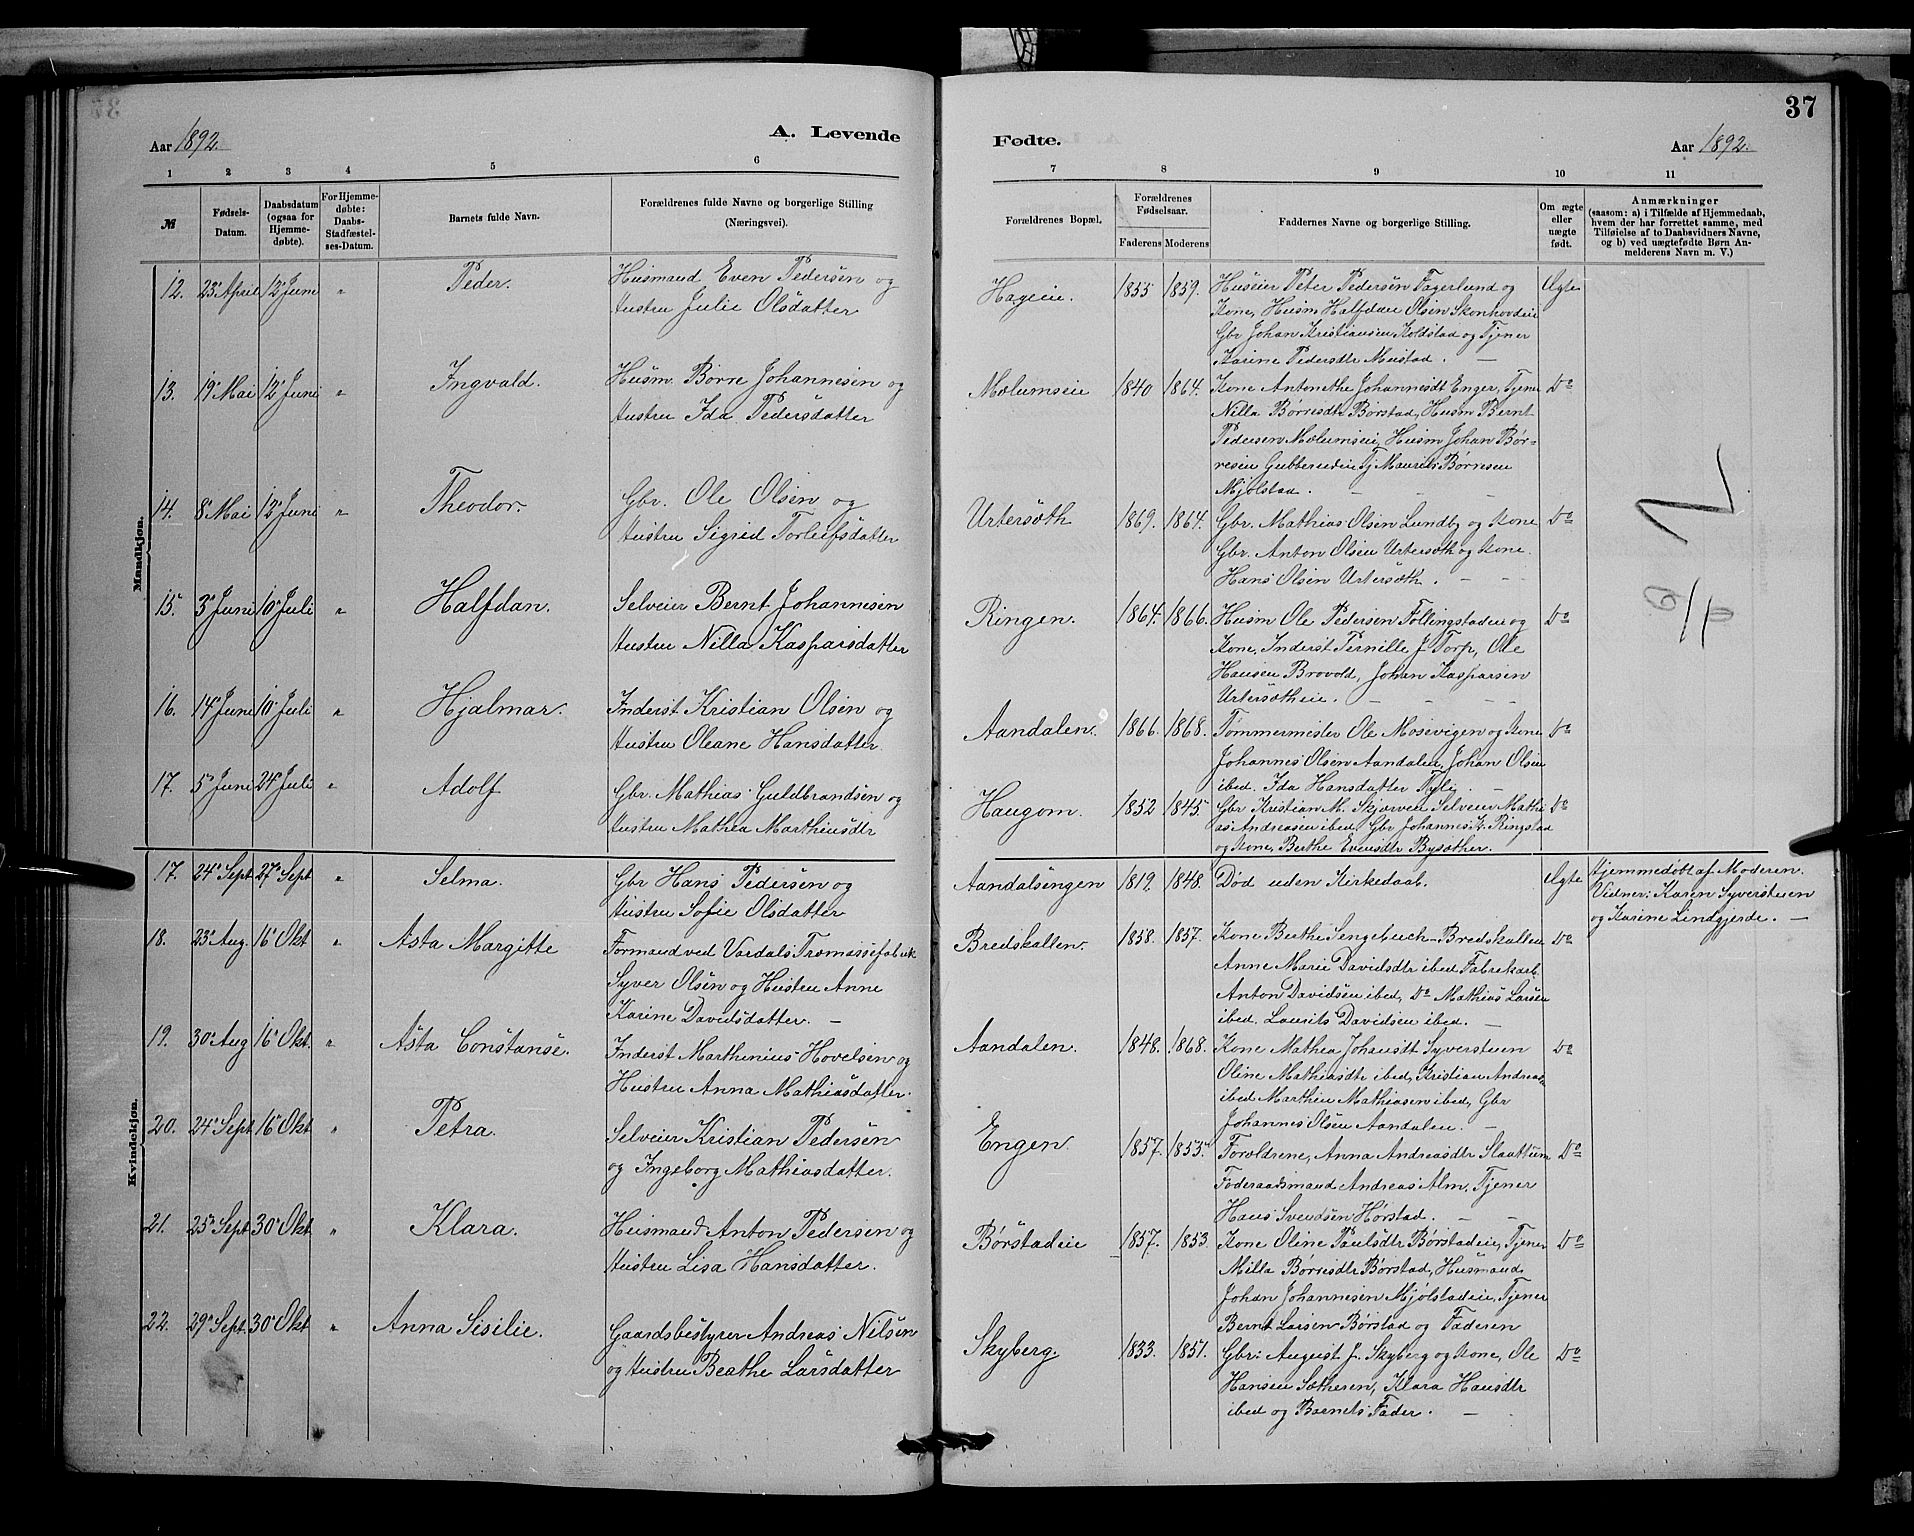 37
Aar 1892.
A. Levende
Fødte.
Aar 1892.
1 2 3 4 5 6
7 8 9 10 11
№
Fødsels-Datum.
Daabsdatum (ogsaa for Hjemmedøbte).
For Hjemmedøbte: Daabs-Stadfæstelses-Datum.
Barnets fulde Navn.
Forældrenes fulde Navne og borgerlige Stilling
(Næringsvei).
Forældrenes Bopæl.
Forældrenes Fødselsaar.
Faderens Moderens
Faddernes Navne og borgerlige Stilling.
Om ægte eller uægte født.
Anmærkninger
(saasom: a) i Tilfælde af Hjemmedaab,
hvem der har forrettet samme, med
Tilføielse af to Daabsvidners Navne,
og b) ved uægtefødte Børn An-
melderens Navn m. V.)
Mandkjøn.
12. 23de April 12te Juni " Peder. Husmand Even Pedersen og
Hustru Julie Olsdatter
Hageie. 1855 1859. Huseier Peter Pedersen Fagerlund og Ægte
Kone, Husm Halfdan Olsen Skonhovdeie
Gbr Johan Kristiansen Koldstad og Tjener
Karine Pedersdtr Mustad. —
13. 19de Mai 12te Juni " Ingvald. Husm. Børre Johannesen og
Hustru Ida Pedersdatter
Mælumseie 1840 1864. Kone Antonethe Johannesdt Enger, Tjener Do
Nilla Børresdtr Børstad, Husm Bernt
Pedersen Mælumseie, Husm Johan Bør-
resen Gubberudeie Tj Maurits Børresen
Mjølstad. — — —
14. 8de Mai 12te Juni " Theodor. Gbr. Ole Olsen og
Hustru Sigrid Torleifsdatter
Urtersæth 1869. 1864. Gbr. Mathias Olsen Lundby og Kone Do
Gbr. Anton Olsen Urtersæth og Kone.
Hans Olsen Urtersæth. — —
15. 3de Juni 10de Juli " Halfdan. Selveier Bernt Johannesen
Hustru Nilla Kasparsdatter
Ringen. 1864. 1866. Husm Ole PedersenFøllingstadeie og Do
Kone, Inderst Pernille J Torp, Ole
Hansen Brovold, Johan Kaspersen
Urtersætheie. — — — —
16. 14de Juni 10de Juli " Hjalmar. Inderst Kristian Olsen og
Hustru Oleane Hansdatter.
Aandalen. 1866. 1868. Tømmermester Ole Mosevigen og Kone Do
Johannes Olsen Aandalen, Johan Olsen
ibed. Ida Hansdatter Fyle. —
17. 5te Juni 24de Juli " Adolf Gbr. Mathias Guldbrandsen og
Hustru Mathea Marthinsdtr
Haugom. 1852 1845. Gbr Kristian M. Skjerven Selveier Mathi Do
as Andreasen ibed, Gbr Johannes K. Ringstad
og Kone, Berthe Evensdtr Bysæther.
Kvindekjøn.
17. 24de Sept 27de Sept " Selma. Gbr Hans Pedersen og
Hustru Sofie Olsdatter
Aandalsengen 1819. 1848. Død uden Kirkedaab. Ægte Hjemmedøbt af Moderen.
Vidner: Karen Syversteen
og Karine Lindgjerde. —
18. 23de Aug. 16de Okt " Asta Margitte Formand ved Vardals Træmassefabrik
Syver Olsen og Hustru Anne
Karine Davidsdatter. —
Bredskallen. 1858. 1857. Kone Berthe Sengebuch Bredskallen Do
Anne Marie Davidsdtr ibed Fabrekarb.
Anton Davidsen ibed, Do Mathias Larsen
ibed. Laurits Davidsen ibed. —
19. 30de Aug 16de Okt. " Asta Constanse. Inderst Marthinius Hovelsen og
Hustru Anna Mathiasdatter.
Aandalen. 1848. 1868. Kone Mathea Johansdt Syversteen Do
Oline Mathiasdtr ibed, Kristian Andreas
ibed Marthin Mathiasen ibed, Gbr
Johannes Olsen Aandalen. —
20. 24de Sept 16de Okt " Petra. Selveier Kristian Pedersen
og Ingeborg Mathiasdatter.
Engen. 1857. 1853. Foroldrene, Anna Andreasdtr Slaattum Do
Føderaadsmand Andreas Alm, Tjener
Hans Svendsen Hørstad. — —
21. 25de Sept 30de Okt. " Klara. Husmand Anton Pedersen og
Hustru Lisa Hansdatter.
Børstadeie 1857. 1853. Kone Oline Paulsdtr Børstadeie, Tjener Do
Milla Børresdtr Børstad, Husmand
Johan Johannesen Mjølstadeie, Tjener
Bernt Larsen Børstad og Faderen
22. 29de Sept. 30de Okt " Anna Sisilie. Gaardsbestyrer Andreas Nilsen
og Hustru Beathe Larsdatter
Skyberg. 1833. 1851. Gbr: August J. Skyberg og Kone, Ole Do
Hansen Sætheren, Klara Hansdtr
ibed og Barnets Fader. —